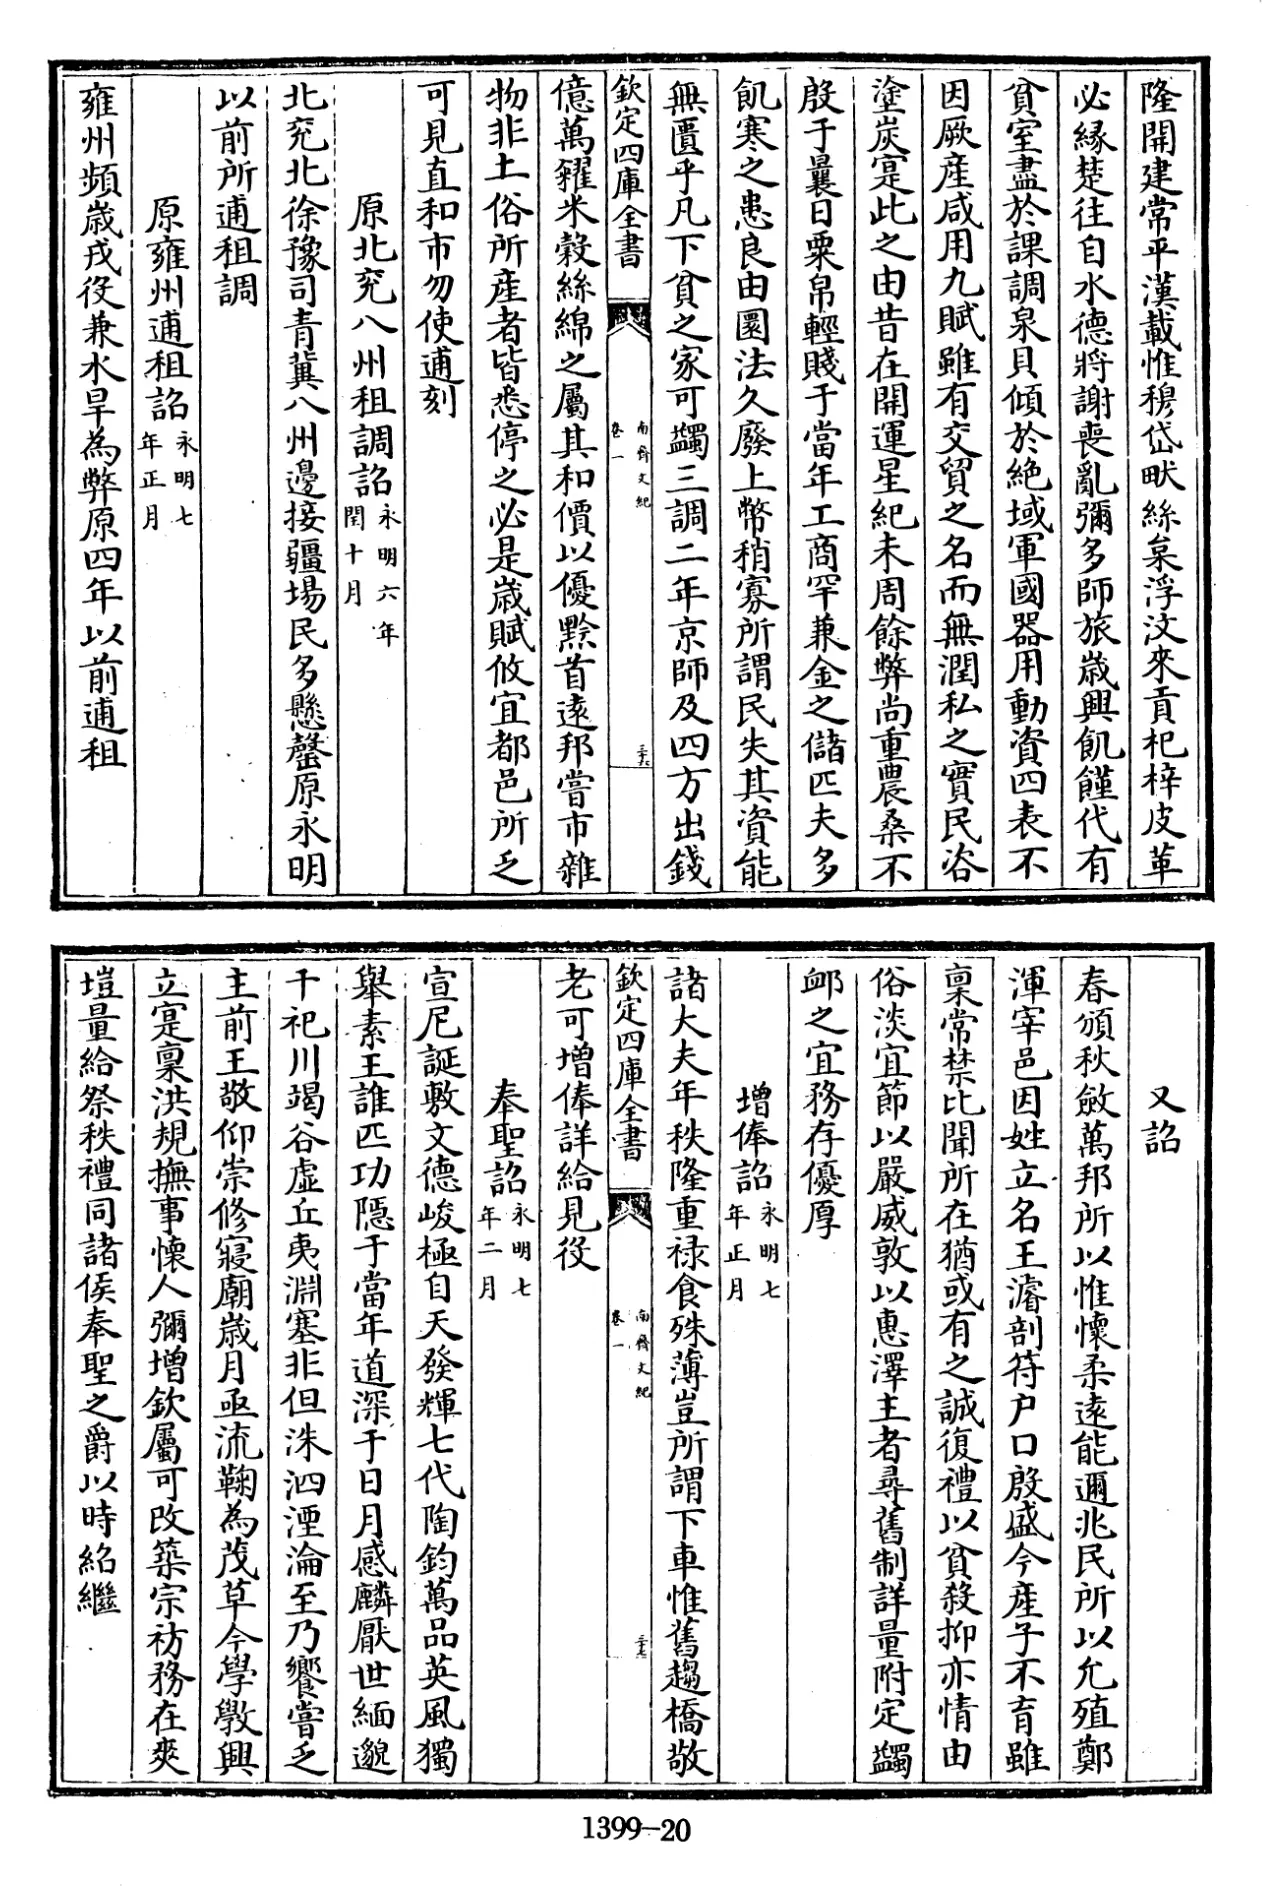 隆開建常平漢載惟穆岱畎絲枲浮汶來貢杞梓皮革
必緣楚往自水德將謝喪亂彌多師旅歲興飢饉代有
貧室盡於課調泉貝傾於絶域軍國器用動資四表不
因厥産咸用九賦雖有交貿之名而無潤私之實民咨
塗炭寔此之由昔在開運星紀未周餘弊尚重農桑不
殷于曩日粟帛輕賤于當年工商罕兼金之儲匹夫多
飢寒之患良由圜法久廢上幣稍寡所謂民失其資能
無匱乎凡下貧之家可蠲三調二年京師及四方出錢
欽定四庫全書
南齊文紀
卷一
三十六
億萬糴米穀絲綿之屬其和價以優黔首遠邦嘗市雜
物非土俗所産者皆悉停之必是歲賦攸宜都邑所乏
可見直和市勿使逋刻
原北兖八州租調詔永明六年閏十月
北兖北徐豫司青冀八州邊接疆場民多懸罄原永明
以前所逋租調
原雍州逋租詔永明七年正月
雍州頻歲戎役兼水旱為弊原四年以前逋租
又詔
春頒秋斂萬邦所以惟懷柔遠能邇兆民所以允殖鄭
渾宰邑因姓立名王濬剖符户口殷盛今産子不育雖
稟常禁比聞所在猶或有之誠復禮以貧殺抑亦情由
俗淡宜節以嚴威敦以惠澤主者尋舊制詳量附定蠲
卹之宜務存優厚
增俸詔永明七年正月
諸大夫年秩隆重禄食殊薄豈所謂下車惟舊趨橋敬
欽定四庫全書
南齊文紀
卷一
三十七
老可增俸詳給見役
奉聖詔永明七年二月
宣尼誕敷文德峻極自天發輝七代陶鈞萬品英風獨
舉素王誰匹功隱于當年道深于日月感麟厭世緬邈
千祀川竭谷虛丘夷淵塞非但洙泗湮淪至乃饗嘗乏
主前王敬仰崇修寢廟歲月亟流鞠為茂草今學斆興
立寔稟洪規撫事懷人彌增欽屬可改築宗祊務在爽
塏量給祭秩禮同諸侯奉聖之爵以時紹繼
1399-20